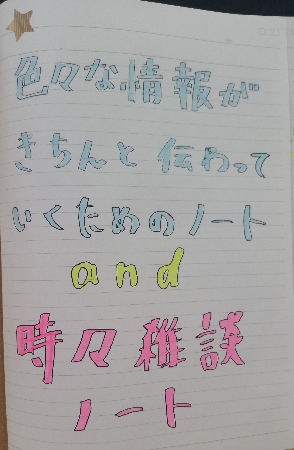 色々な情報が
きちんと伝わって
いくためのノート
and
時々雑談
ノート